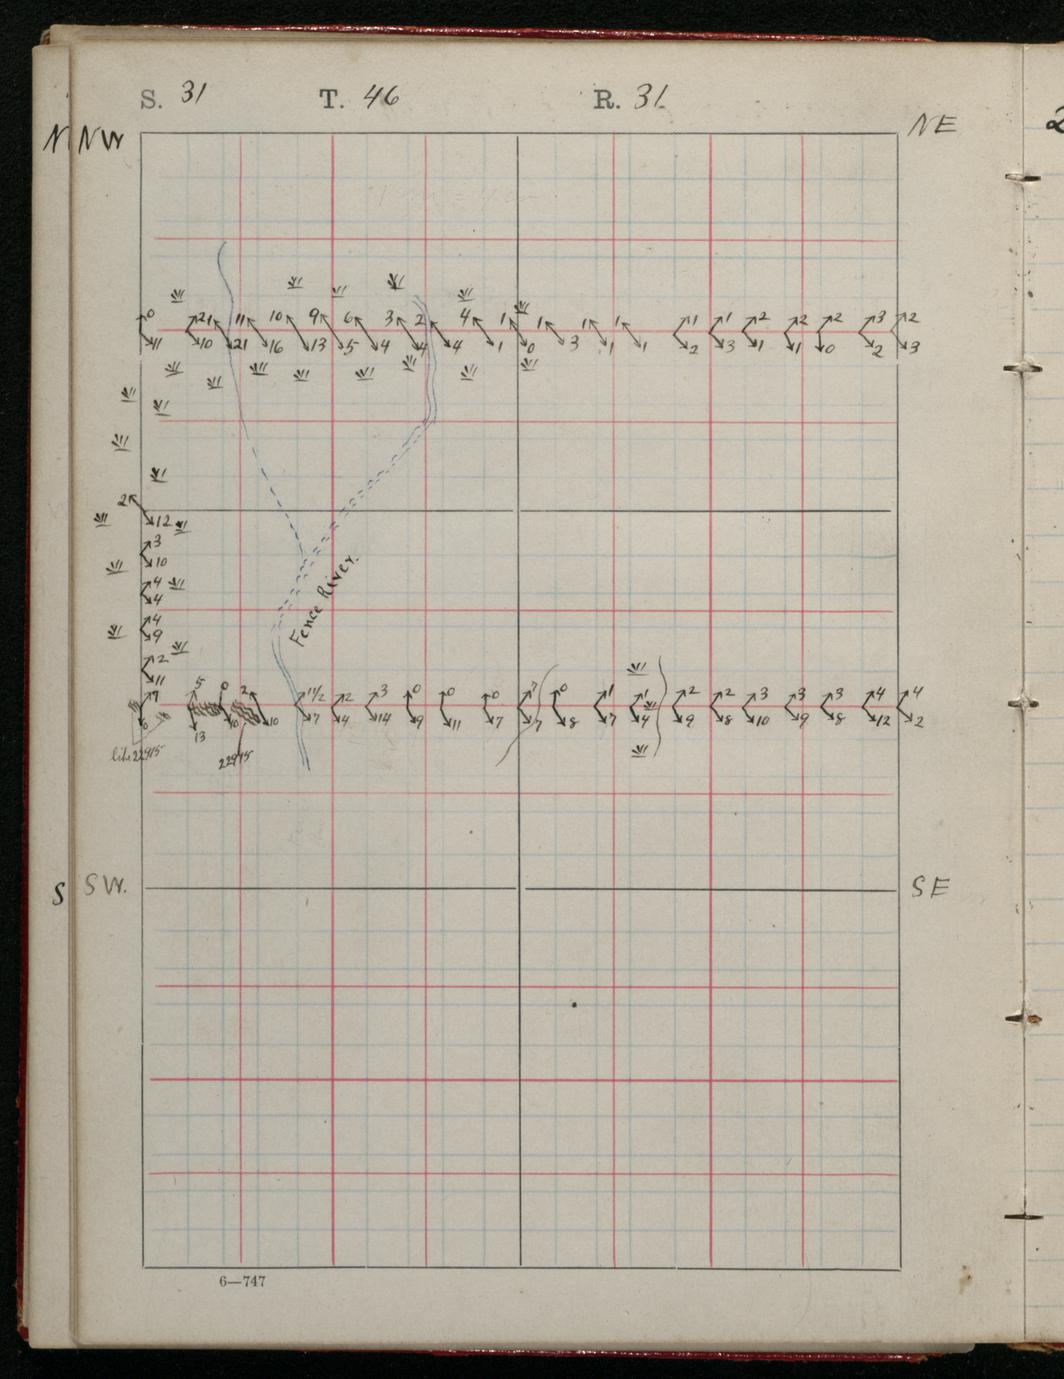 S. 31 T. 46 R. 31
N NW NE
2
0 21 11 10 9 6 3 2 4 1 1 1 1 1 1 2 2 2 3 2
11 10 21 16 13 5 4 4 4 1 0 3 1 1 2 3 1 1 0 2 3
2
12
3
10
4
4
4
9
2
11
7 5 0 2 1 1/2 2 3 0 0 0 7 0 1 1 2 2 3 3 3 4 4
6 13 10 10 7 4 14 9 11 7 7 8 7 4 9 8 10 9 8 12 2
like 22915
22915
Fence River.
S SW. SE
6—747